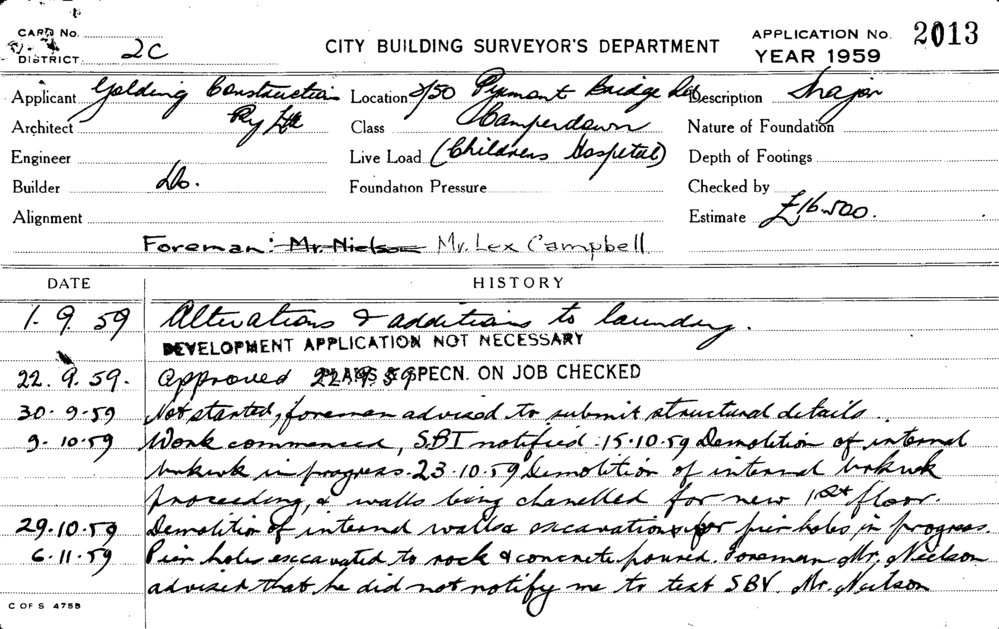 CARD No.
DISTRICT 2C
CITY BUILDING SURVEYOR'S DEPARTMENT
APPLICATION No. 2013
YEAR 1959
Applicant Golding Construction Location 2/50 Pyrmont Bridge Rd Description Major
Architect Pty Ltd Class Camperdown Nature of Foundation
Engineer Live Load (Childrens Hospital) Depth of Footings
Builder Do. Foundation Pressure Checked by
Alignment Estimate £16.500.
Foreman: Mr. Nielson Mr. Lex Campbell
DATE HISTORY
1. 9. 59 Alterations & additions to laundry.
DEVELOPMENT APPLICATION NOT NECESSARY
22. 9. 59. Approved 22.9.59 PLANS & SPECN. ON JOB CHECKED
30. 9. 59 Not started, foreman advised to submit structural details.
9. 10. 59 Work commenced, SBI notified. 15.10.59 Demolition of internal
brkwk in progress. 23.10.59 Demolition of internal brkwk
proceeding, & walls being chanelled for new 1st floor.
29.10.59 Demolition of internal walls & excavations for pier holes in progress.
6.11.59 Pier holes excavated to rock & concrete poured. Foreman Mr. Nielson
advised that he did not notify me to test SBV. Mr. Neilson
C OF S 4755